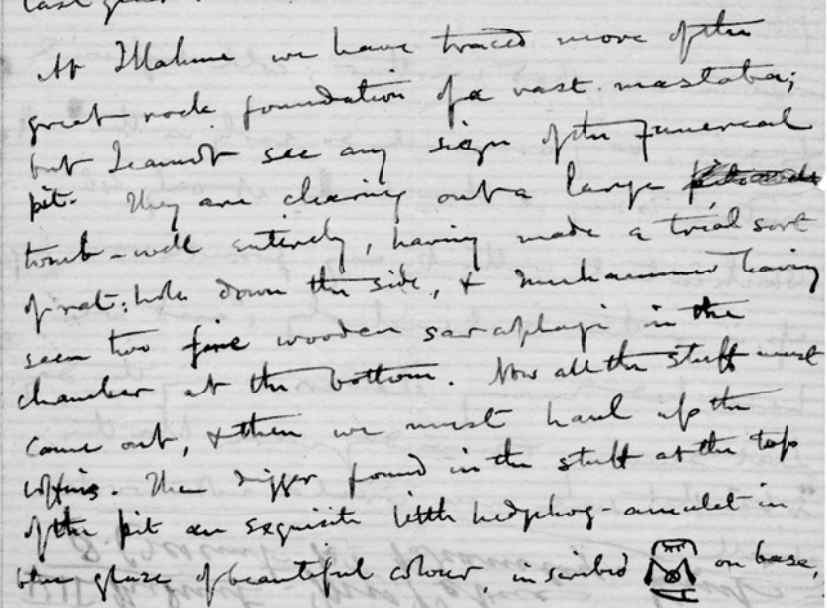 At Illahun we have traced more of the
great rock foundation of a vast mastaba;
but I cannot see any sign of the funereal
pit. They are clearing out a large
tomb-well entirely, having made a trial sort
of rat-hole down the side, & Muhammed having
seen two fine wooden sarcophagi in the
chamber at the bottom. Now all the stuff must
come out, & then we must haul up the
coffins. The digger found in the stuff at the top
of the pit an exquisite little hedgehog-amulet in
blue glaze of beautiful colour, inscribed on base,